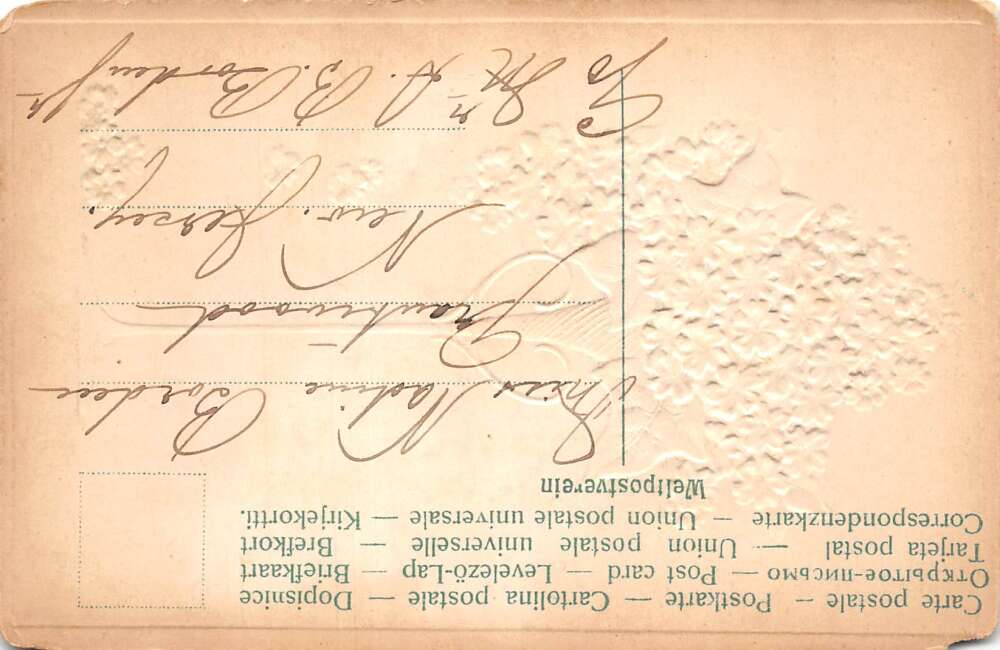 Carte postale – Postkarte – Cartolina postale – Dopisnice
Открытое-письмо – Post card – Levelező-Lap – Briefkaart
Tarjeta postal — Union postale universelle – Brefkort
Correspondenzkarte – Union postale universale – Kirjekortti.
Weltpostverein
Miss Nadine Borden
Grantwood
New. Jersey.
Mr B. Borden Jr